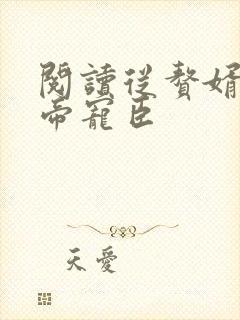 閱讀從贅婿
帝寵臣
天愛